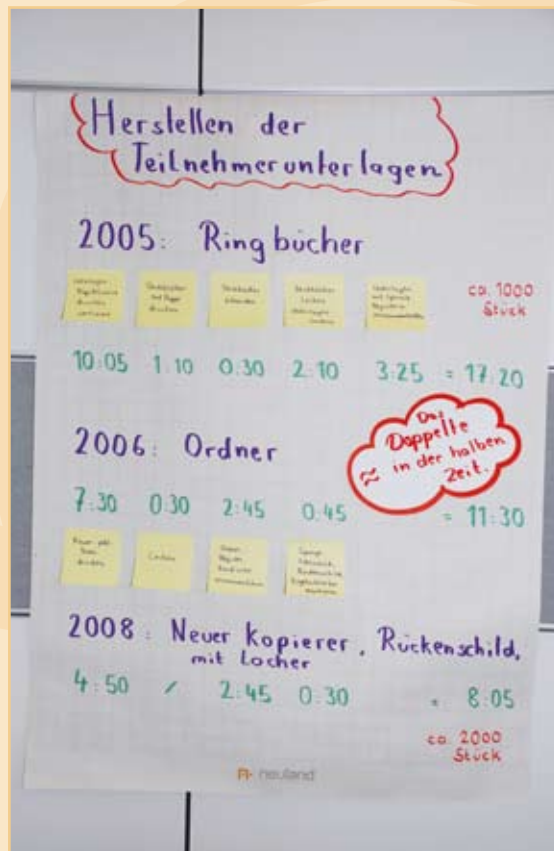 Herstellen der
Teilnehmerunterlagen
2005: Ringbücher
ca. 1000
Stück
10:05 1:10 0:30 2:10 3:25 = 17:20
Das
Doppelte
≈ in der halben
Zeit.
2006: Ordner
7:30 0:30 2:45 0:45 = 11:30
Lochen
2008: Neuer Kopierer, Rückenschild,
mit Locher
4:50 / 2:45 0:30 = 8:05
ca. 2000
Stück
neuland